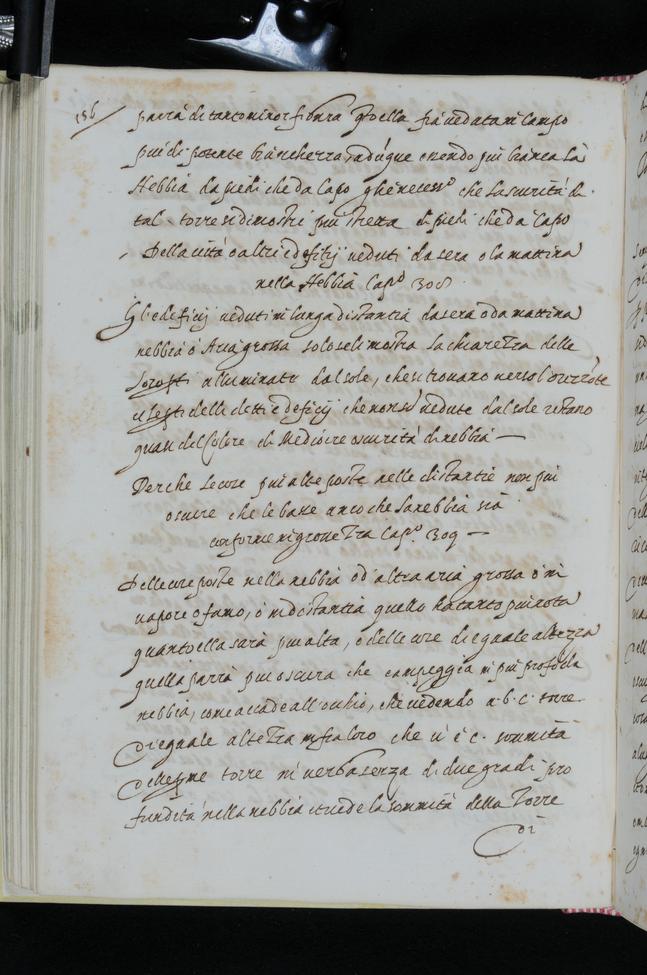 156
parrà di tanto minor figura qto ella fia veduta in campo
piu di potente bianchezza, adūque essendo piu bianca la
Nebbia da piedi che da Capo gli è necess.o che la scurità di
tal torre si dimostri piu stretta da piedi che da Capo
Della città o altri edefitij veduti da sera o la mattina
nella Nebbia Cap.o 308.
Gli edeficij veduti in lunga distantia da sera o da mattina
nebbia ò Aria grossa solo se li mostra la chiarezza delle
loro pti illuminate dal sole, che si trovano verso l'orizzōte
e le pti delle dette edeficij che non sō vedute dal sole restano
quasi del Colore di Mediocre oscurità di nebbia —
Perche le cose piu alte poste nelle distantie non piu
oscure che le basse anco che la nebbia sia
uniforme in grossezza Cap.o 309 —
Delle cose poste nella nebbia od altra aria grossa ò in
vapore o fumo, ò in distantia quella ha tanto piu nota
quanto ella sarà piu alta, e delle cose di eguale altezza
quella parrà piu oscura che campeggia in piu profōda
nebbia, come accade all'occhio, che vedendo a·b·c· torre
di eguale altezza infra loro che vi è c. sommità
torre in verba senza di due gradi pro
fundità nella nebbia et vede la sommità della Torre
di